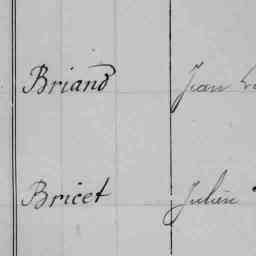 Briand Jean
Bricet Julien